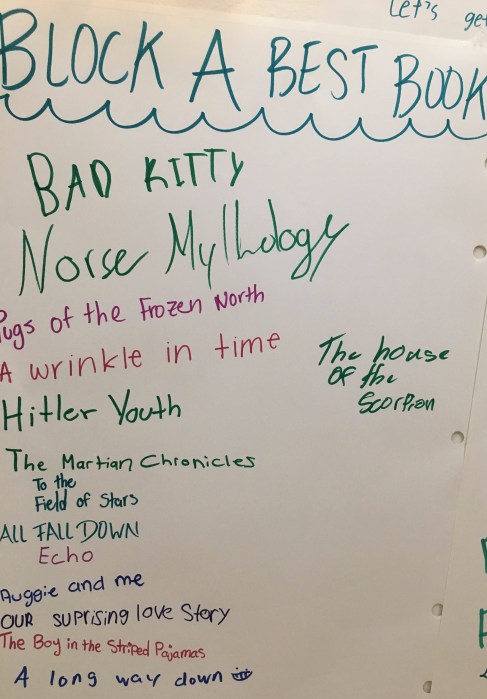 Let's get
BLOCK A BEST BOOK
BAD KITTY
Norse Mythology
Pugs of the Frozen North
A wrinkle in time
The house
OF the
Scorpion
Hitler Youth
The Martian Chronicles
To the
Field of Stars
ALL FALL DOWN
Echo
Auggie and me
OUR suprising love Story
The Boy in the Striped Pajamas
A long way down